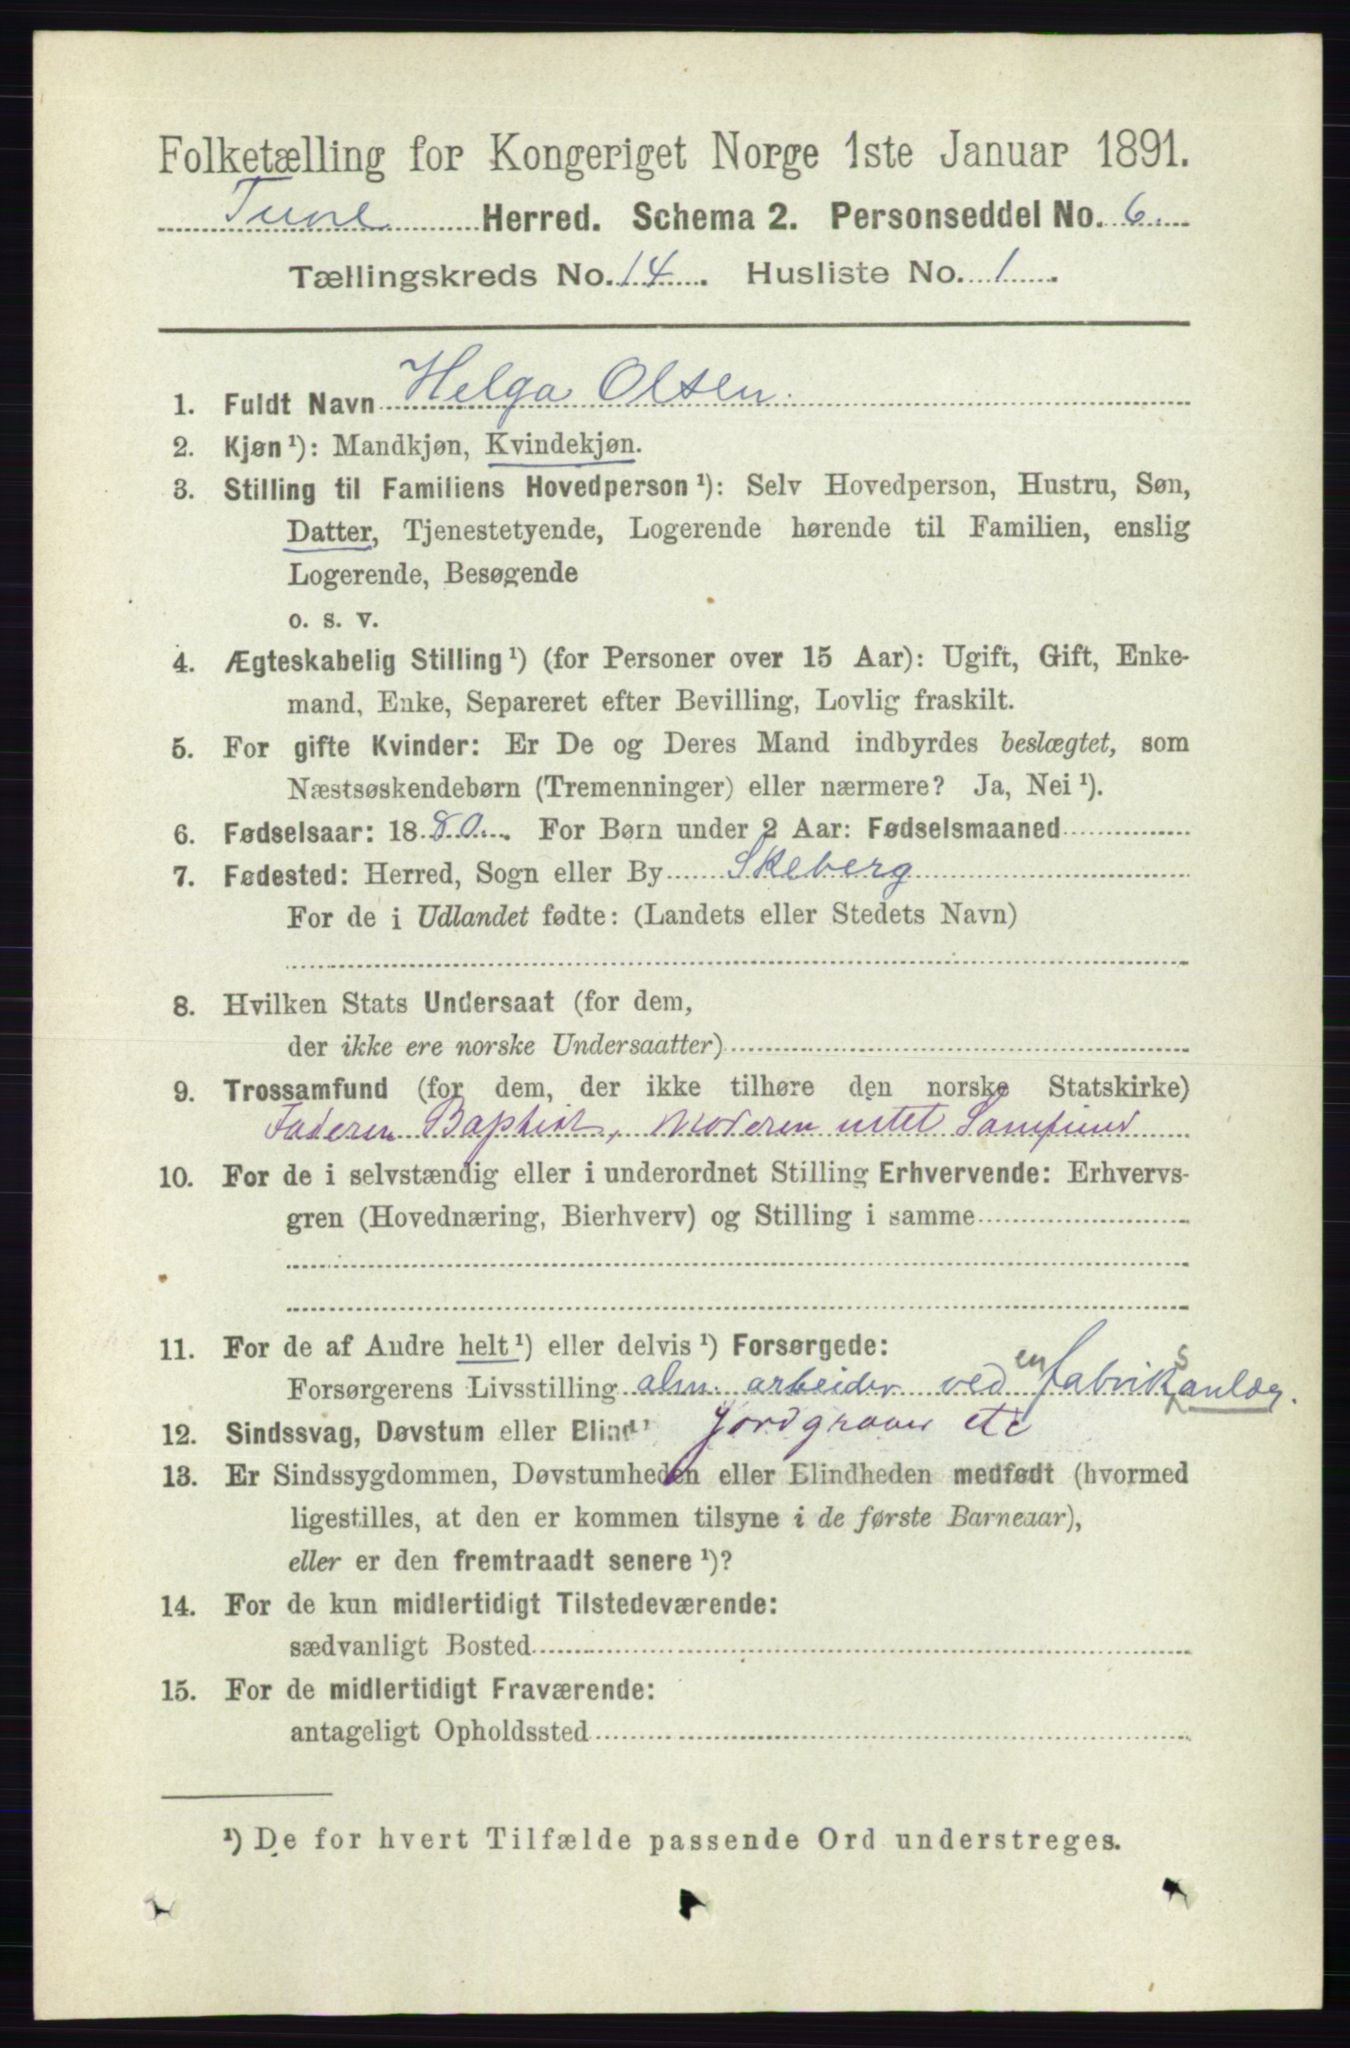 Folketælling for Kongeriget Norge 1ste Januar 1891.
Tune Herred. Schema 2. Personseddel No. 6.
Tællingskreds No. 14. Husliste No. 1.
1. Fuldt Navn Helga Olsen.
2. Kjøn ¹): Mandkjøn, Kvindekjøn.
3. Stilling til Familiens Hovedperson ¹): Selv Hovedperson, Hustru, Søn,
Datter, Tjenestetyende, Logerende hørende til Familien, enslig
Logerende, Besøgende
o. s. v.
4. Ægteskabelig Stilling ¹) (for Personer over 15 Aar): Ugift, Gift, Enke-
mand, Enke, Separeret efter Bevilling, Lovlig fraskilt.
5. For gifte Kvinder: Er De og Deres Mand indbyrdes beslægtet, som
Næstsøskendebørn (Tremenninger) eller nærmere? Ja, Nei ¹).
6. Fødselsaar: 1880. For Børn under 2 Aar: Fødselsmaaned
7. Fødested: Herred, Sogn eller By Skeberg
For de i Udlandet fødte: (Landets eller Stedets Navn)
8. Hvilken Stats Undersaat (for dem,
der ikke ere norske Undersaatter)
9. Trossamfund (for dem, der ikke tilhøre den norske Statskirke)
Faderen Baptist, Moderen intet Samfund
10. For de i selvstændig eller i underordnet Stilling Erhvervende: Erhvervs-
gren (Hovednæring, Bierhverv) og Stilling i samme
11. For de af Andre helt ¹) eller delvis ¹) Forsørgede:
Forsørgerens Livsstilling alm. arbeider ved en fabriksanlæg.
12. Sindssvag, Døvstum eller Blind ¹ Jordgraver etc
13. Er Sindssygdommen, Døvstumheden eller Blindheden medfødt (hvormed
ligestilles, at den er kommen tilsyne i de første Barneaar),
eller er den fremtraadt senere ¹)?
14. For de kun midlertidigt Tilstedeværende:
sædvanligt Bosted
15. For de midlertidigt Fraværende:
antageligt Opholdssted
¹) De for hvert Tilfælde passende Ord understreges.